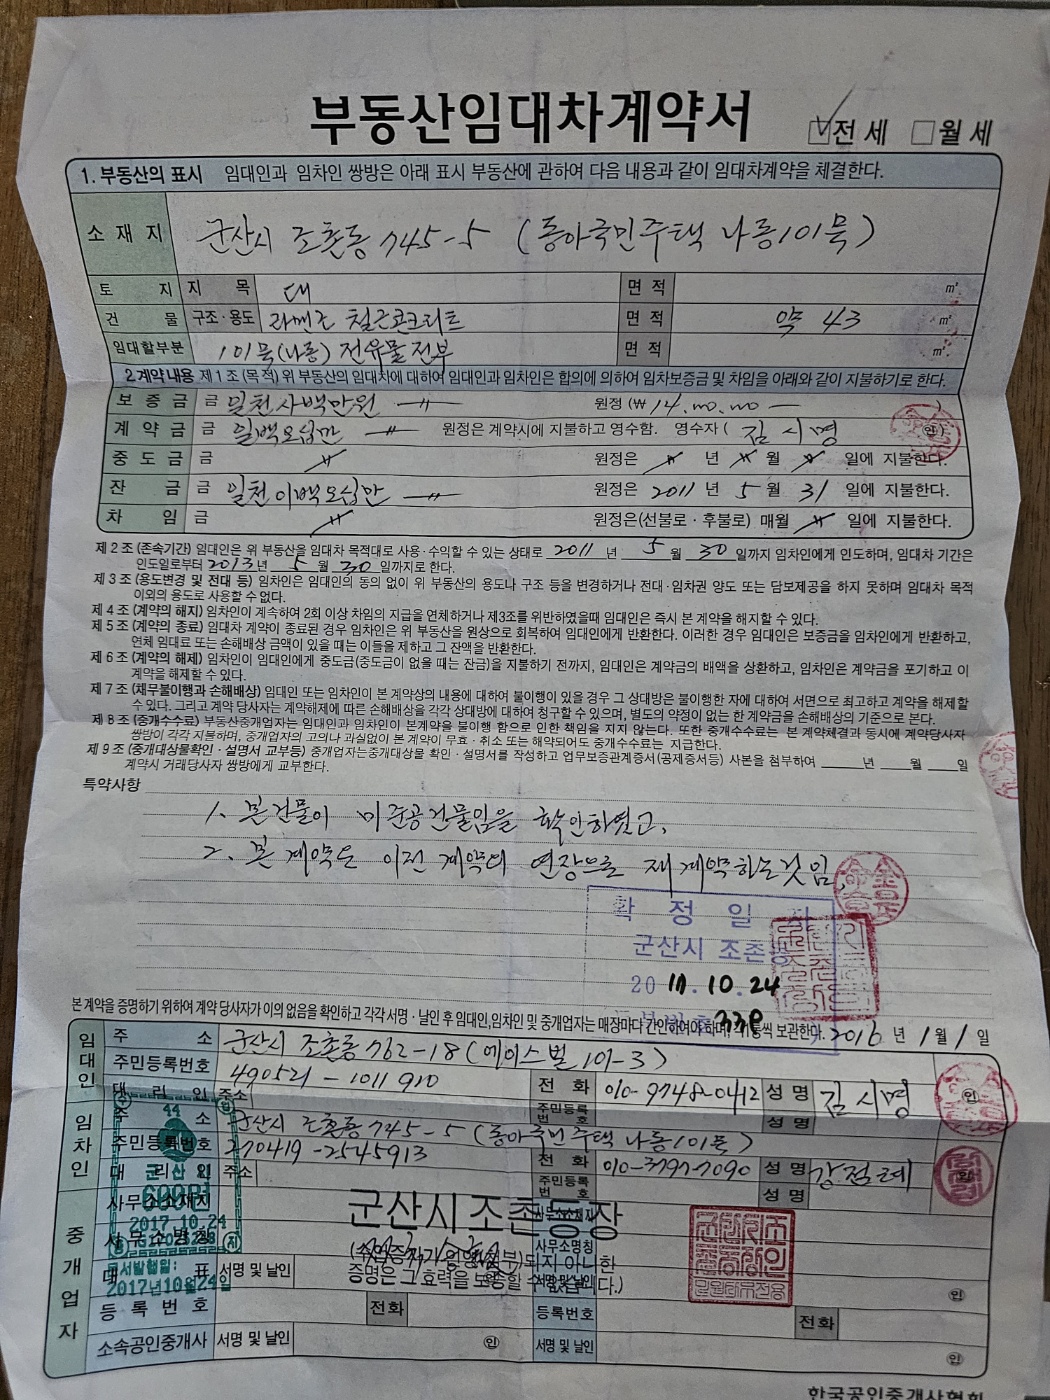 부동산임대차계약서 ☑전세 □월세
1. 부동산의 표시 임대인과 임차인 쌍방은 아래 표시 부동산에 관하여 다음 내용과 같이 임대차계약을 체결한다.
소재지 군산시 조촌동 745-5 (동아국민주택 나동101호)
토 지 지 목 대 면 적 ㎡
건 물 구조·용도 라멘조 철근콘크리트 면 적 약 43 ㎡
임대할부분 101호(나동) 전유물전부 면 적 ㎡
2.계약내용 제 1 조 (목적) 위 부동산의 임대차에 대하여 임대인과 임차인은 합의에 의하여 임차보증금 및 차임을 아래와 같이 지불하기로 한다.
보 증 금 금 일천사백만원 원정 (₩ 14.00.00 —
계 약 금 금 일백오십만 원정은 계약시에 지불하고 영수함. 영수자 ( 김시명 인)
중 도 금 금 〃 원정은 〃 년 〃 월 〃 일에 지불한다.
잔 금 금 일천이백오십만 원정은 2011 년 5 월 31 일에 지불한다.
차 임 금 〃 원정은(선불로·후불로) 매월 〃 일에 지불한다.
제 2 조 (존속기간) 임대인은 위 부동산을 임대차 목적대로 사용·수익할 수 있는 상태로 2011 년 5 월 30 일까지 임차인에게 인도하며, 임대차 기간은
인도일로부터 2013 년 5 월 30 일까지로 한다.
제 3 조 (용도변경 및 전대 등) 임차인은 임대인의 동의 없이 위 부동산의 용도나 구조 등을 변경하거나 전대·임차권 양도 또는 담보제공을 하지 못하며 임대차 목적
이외의 용도로 사용할 수 없다.
제 4 조 (계약의 해지) 임차인이 계속하여 2회 이상 차임의 지급을 연체하거나 제3조를 위반하였을때 임대인은 즉시 본 계약을 해지할 수 있다.
제 5 조 (계약의 종료) 임대차 계약이 종료된 경우 임차인은 위 부동산을 원상으로 회복하여 임대인에게 반환한다. 이러한 경우 임대인은 보증금을 임차인에게 반환하고,
연체 임대료 또는 손해배상 금액이 있을 때는 이들을 제하고 그 잔액을 반환한다.
제 6 조 (계약의 해제) 임차인이 임대인에게 중도금(중도금이 없을 때는 잔금)을 지불하기 전까지, 임대인은 계약금의 배액을 상환하고, 임차인은 계약금을 포기하고 이
계약을 해제할 수 있다.
제 7 조 (채무불이행과 손해배상) 임대인 또는 임차인이 본 계약상의 내용에 대하여 불이행이 있을 경우 그 상대방은 불이행한 자에 대하여 서면으로 최고하고 계약을 해제할
수 있다. 그리고 계약 당사자는 계약해제에 따른 손해배상을 각각 상대방에 대하여 청구할 수 있으며, 별도의 약정이 없는 한 계약금을 손해배상의 기준으로 본다.
제 8 조 (중개수수료) 부동산중개업자는 임대인과 임차인이 본계약을 불이행 함으로 인한 책임을 지지 않는다. 또한 중개수수료는 본 계약체결과 동시에 계약당사자
쌍방이 각각 지불하며, 중개업자의 고의나 과실없이 본 계약이 무효·취소 또는 해약되어도 중개수수료는 지급한다.
제 9 조 (중개대상물확인·설명서 교부등) 중개업자는중개대상물 확인·설명서를 작성하고 업무보증관계증서(공제증서등) 사본을 첨부하여 년 월 일
계약시 거래당사자 쌍방에게 교부한다.
특약사항
1. 본건물이 미준공건물임을 확인하였고,
2. 본 계약도 이전 계약의 연장으로 재계약하는것임.
확 정 일 자
군산시 조촌동
2017.10.24
338
본 계약을 증명하기 위하여 계약 당사자가 이의 없음을 확인하고 각각 서명·날인 후 임대인,임차인 및 중개업자는 매장마다 간인하여야 하며, 각 1통씩 보관한다. 2016 년 1 월 1 일
임대인 주 소 군산시 조촌동 762-18 (에이스빌 101-3)
주민등록번호 490521-1011910 전 화 010-9748-0412 성 명 김시명 인
대 리 인 주소 주민등록번호 성 명
임차인 주 소 군산시 조촌동 745-5 (동아국민주택 나동101호)
주민등록번호 270419-2545913 전 화 010-3797-7090 성 명 강점례
대 리 인 주소 주민등록번호 성 명
44
군산시
600원
2017.10.24
발행일:
2017년10월24일
군산시조촌동장
(수입증지가 인영(첨부)되지 아니한
증명은 그 효력을 보증할 수 없습니다.)
중개업자 사무소소재지 사무소소재지
사무소명칭 사무소명칭
대 표 서명 및 날인 인 서명 및 날인 인
등 록 번 호 전화 등록번호 전화
소속공인중개사 서명 및 날인 인 서명 및 날인 인
한국공인중개사협회